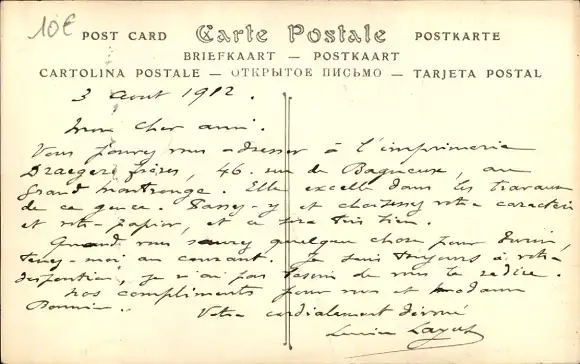 10€
POST CARD Carte Postale POSTKARTE
BRIEFKAART — POSTKAART
CARTOLINA POSTALE — ОТКРЫТОЕ ПИСЬМО — TARJETA POSTAL
3 Aout 1912.
Mon cher ami.
Vous pouvez vous adresser à l'imprimerie
Draeger frères, 46. rue de Bagneux, au
Grand Montrouge. Elle excelle dans les travaux
de ce genre. Passez-y et choisissez votre caractère
et votre papier, et ce sera très bien.
Quand vous saurez quelque chose pour
tenez-moi au courant. Je suis toujours à votre
disposition, je n'ai pas besoin de vous le redire.
Nos compliments pour vous et Madame
Votre cordialement dévoué
Lucien